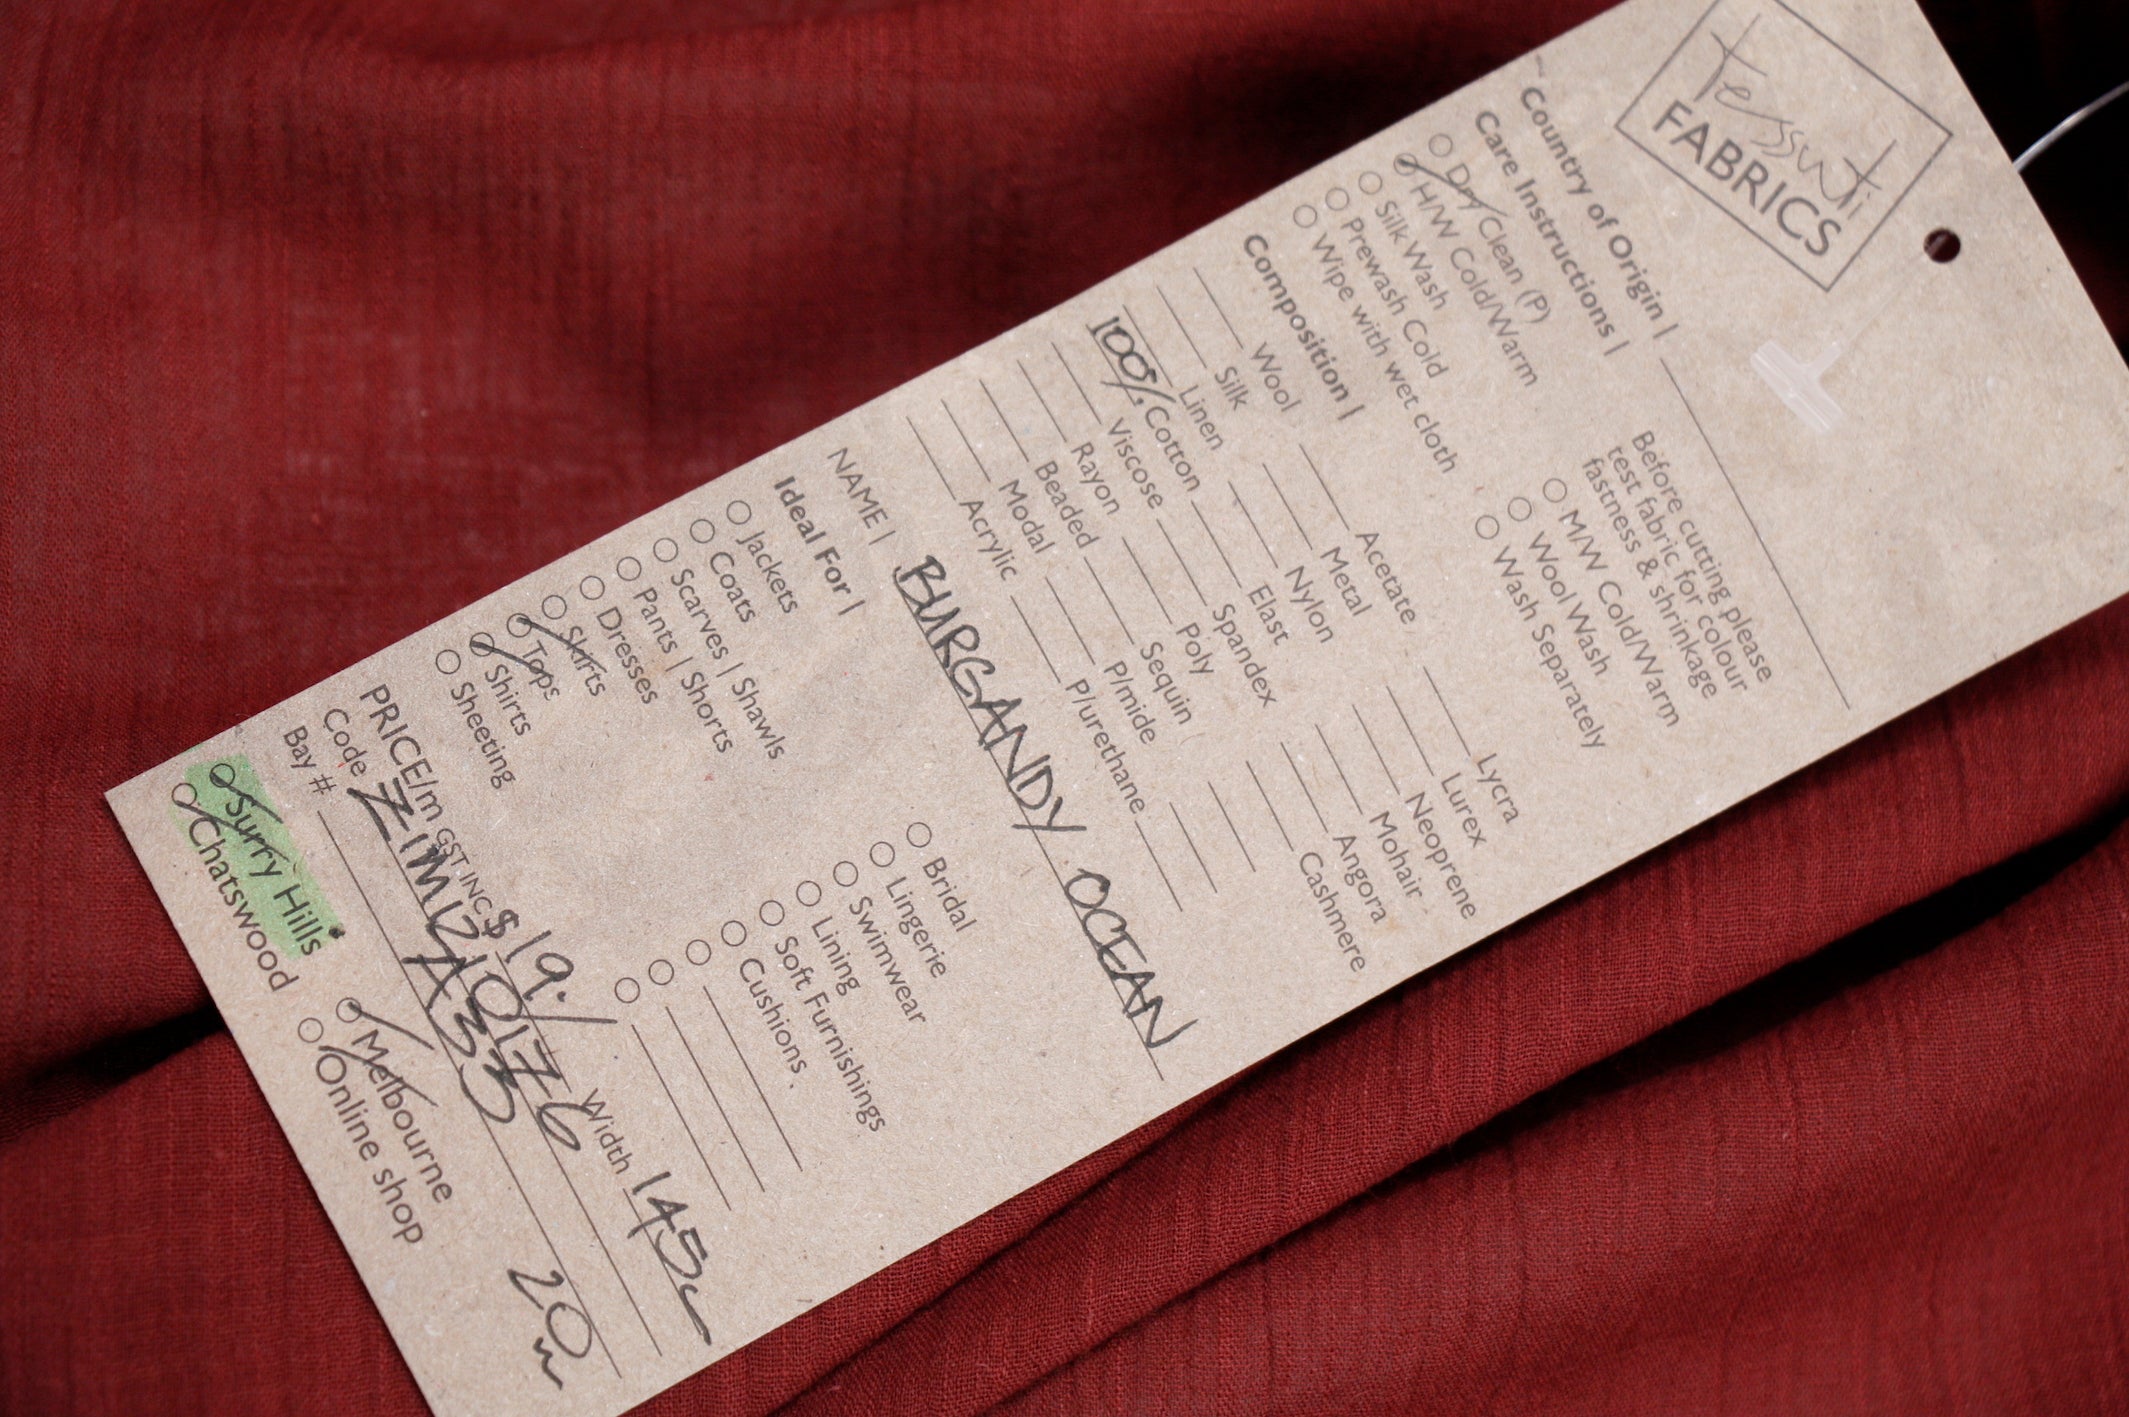 tessuti
FABRICS
Country of Origin |
Care Instructions |
Dry Clean (P)
H/W Cold/Warm
Silk Wash
Prewash Cold
Wipe with wet cloth
Before cutting please
test fabric for colour
fastness & shrinkage
M/W Cold/Warm
Wool Wash
Wash Separately
Composition |
Wool Acetate Lycra
Silk Metal Lurex
Linen Nylon Neoprene
100% Cotton Elast Mohair
Viscose Spandex Angora
Rayon Poly Cashmere
Beaded Sequin
Modal P/mide
Acrylic P/urethane
NAME | BURGANDY OCEAN
Ideal For |
Jackets Bridal
Coats Lingerie
Scarves | Shawls Swimwear
Pants | Shorts Lining
Dresses Soft Furnishings
Skirts Cushions
Tops
Shirts
Sheeting
PRICE/m GST INC $19./ Width 145c
Code ZIMIZ10176
Bay # A33 20m
Surry Hills Melbourne
Chatswood Online shop